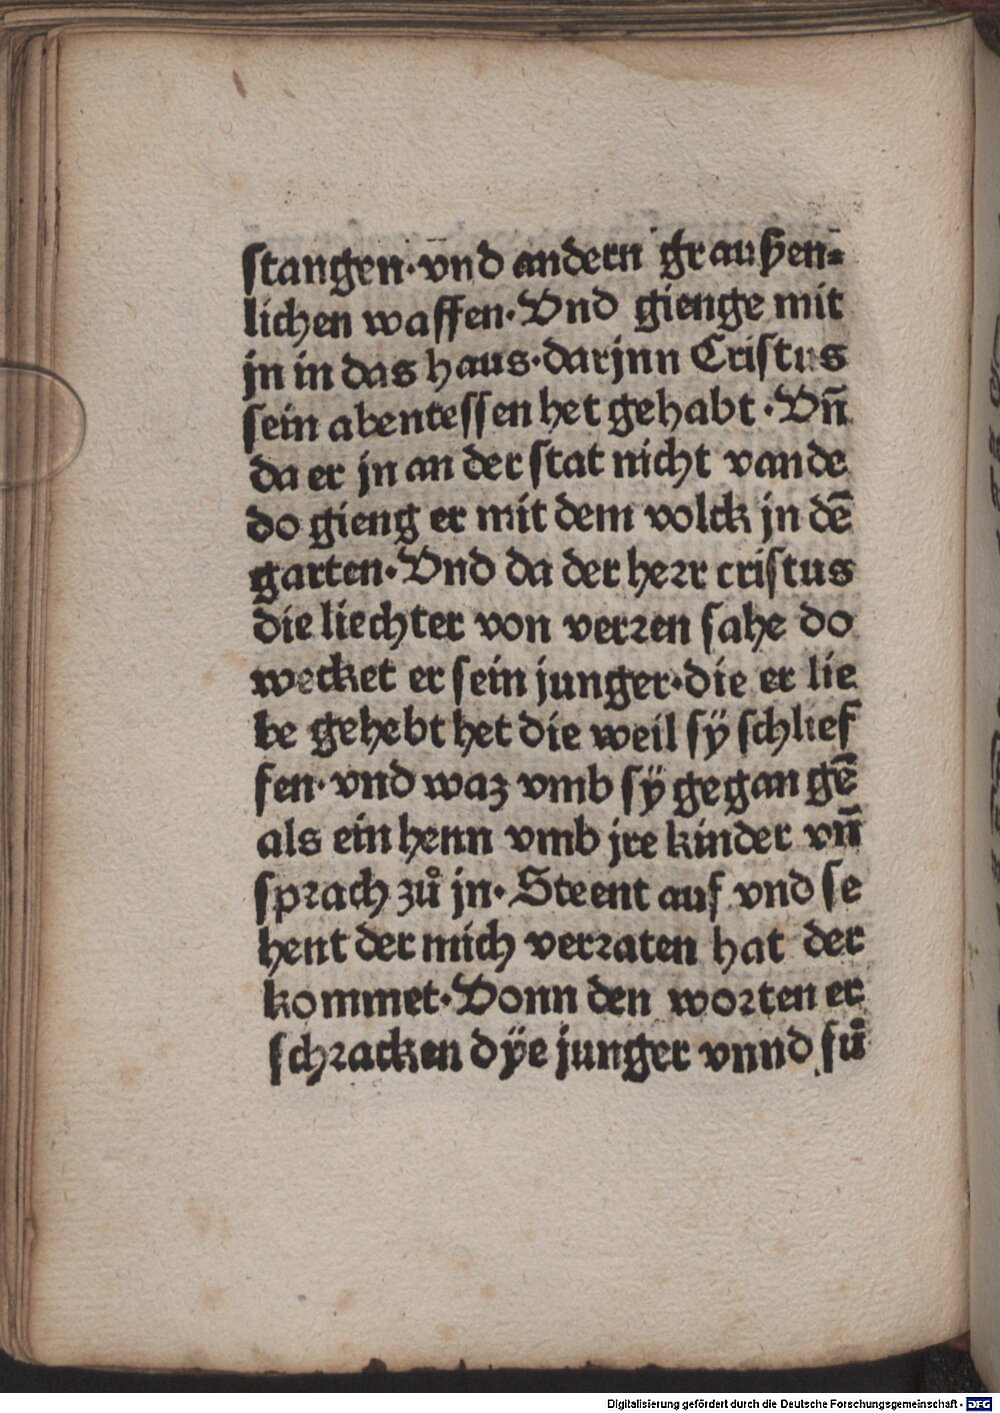 stangen·vnd andern graußen⸗
lichen waffen·Vnd gienge mit
jn in das haus·darjnn Cristus
sein abentessen het gehabt·Vn̄
da er jn an der stat nicht vande
do gieng er mit dem volck jn dē
garten·Vnd da der herr cristus
die liechter von verren sahe do
wecket er sein junger·die er lie
be gehebt het die weil sÿ schlief
fen·vnd waz vmb sÿ gegangē
als ein henn vmb jre kinder vn̄
sprach zů jn·Steent auf vnd se
hent der mich verraten hat der
kommet·Vonn den worten er
schracken dÿe junger vnnd fů
Digitalisierung gefördert durch die Deutsche Forschungsgemeinschaft - DFG